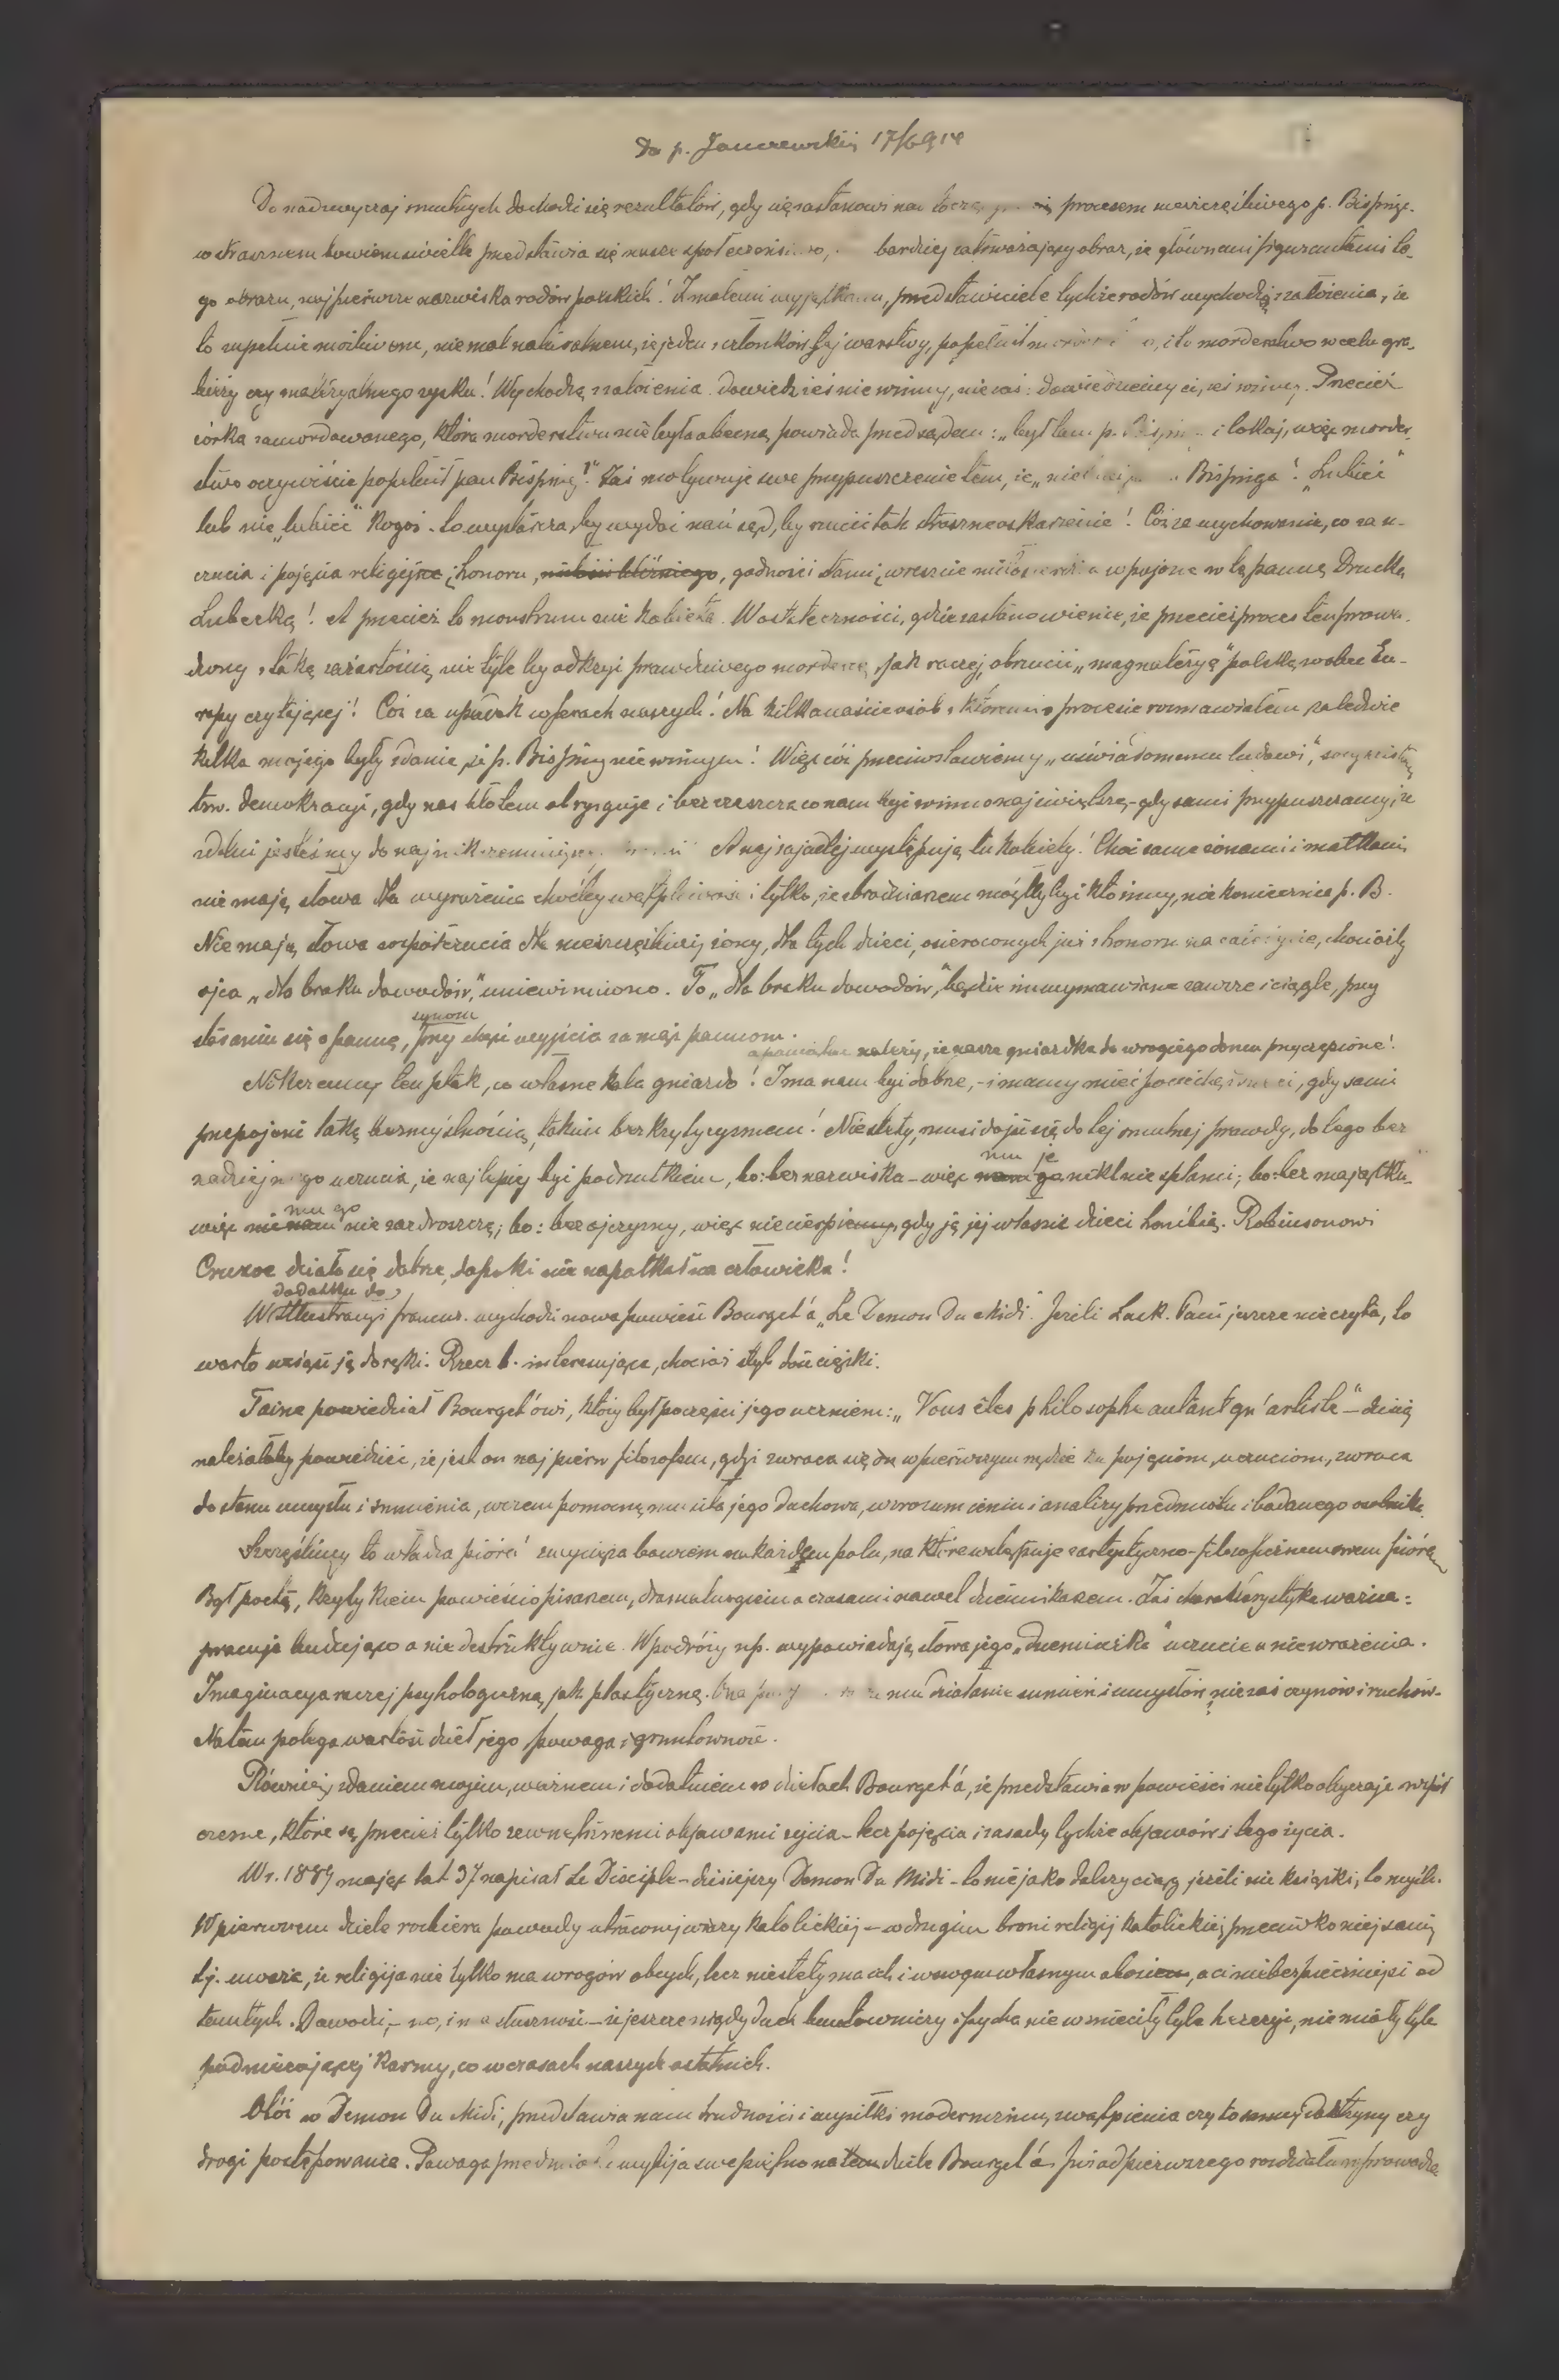 Do p. Janczewskiej 17/6 914
Do nadzwyczaj smutnych dochodzi się rezultatów, gdy się zastanowi nad procesem nieszczęśliwego p. Bisping.
w strasznem bowiem świetle przedstawia się nasze społeczeństwo, bardziej zatrważający obraz, że głównemi figurantami te-
go obrazu, najpierwsze nazwiska rodów polskich! Z małemi wyjątkami, przedstawiciele tychże rodów wychodzą z założenia, że
to zupełnie możliwem, niemal naturalnem, że jeden z członków tej warstwy, popełnił i to morderstwo w celu gra-
bieży czy materyalnego zysku! Wychodzą z założenia dowiedź żeś niewinny, nie zaś: dowiedziemy ci, żeś winny. Przecież
córka zamordowanego, która morderstwu nie była obecną powiada przed sądem: „był tam p. i lokaj, więc morder-
stwo oczywiście popełnił pan Bisping!" Zaś motywuje swe przypuszczenie tem, że „nie Bispinga! „Lubieć"
lub nie „lubieć" kogoś - to wystarcza, by wydać nań sąd, by rzucić tak straszne oskarżenie! Cóż za wychowanie, co za u-
czucia i pojęcia religijne i honoru, godności damy, wreszcie miłosierdzia wpojone w tę pannę Drucką
Lubecką! A przecież to monstrum nie kobieta. W ostateczności, gdzie zastanowienie, że przecież proces ten prowa-
dzony z taką zażartością nie tyle by odkryć prawdziwego mordercę, jak raczej, obrzucić „magnateryę" polską wobec Eu-
ropy czytającej! Cóż za upadek w sferach naszych! Na kilkanaście osób z któremi o procesie rozmawiałem zaledwie
kilka mojego były zdania, że p. Bisping niewinnym! Więc cóż przeciwstawiemy „uświadomemu ludowi",
tzw. demokracyi, gdy nas błotem obryzguje i bezcześci co nam być winno najświętsze, - gdy sami przypuszczamy, że
zdolni jesteśmy do A najzajadlej występują tu kobiety! Choć same żonami i matkami,
nie mają słowa dla wyrażenia choćby wątpliwości tylko, że zbrodniarzem mógłby być kto inny, niekoniecznie p. B.
Nie mają słowa współczucia dla nieszczęśliwej żony, dla tych dzieci, osieroconych już z honoru na całe życie, chociażby
ojca „dla braku dowodów," uniewinniono. To „dla braku dowodów," będzie im wymawiane zawsze i ciągle, przy
staraniu się o pannę, synom przy chęci wyjścia za mąż pannom.
a pamiętać należy, że nasze gniazdka do wrogiego domu przyczepione!
Nikczemny ten ptak, co własne kala gniazdo! I ma nam być dobrze, - i mamy mieć pociechę, gdy sami
przepojeni taką bezmyślnością, takim bezkrytycyzmem! Niestety, musi dojść się do tej smutnej prawdy, do tego bez-
nadziejnego uczucia, że najlepiej być podrzutkiem, bo: bez nazwiska - więc mu je nikt nie splami; bo: bez majątku -
więc mu go nie zazdroszczą; bo: bez ojczyzny, więc nie cierpi gdy ją jej własne dzieci hańbią. Robinsonowi
Cruzoe działo się dobrze, dopóki nie napotkał na człowieka!
W dodatku do Illustracyi francus. wychodzi nowa powieść Bourget'a „Le Demon Du Midi". Jeżeli Łask. Pani jeszcze nie czyta, to
warto wziąść ją do ręki. Rzecz b. interesująca, chociaż styl dość ciężki.
Taine powiedział Bourget'owi, który był poczęści jego uczniem: „Vous êtes philosophe autant qu'artiste" - dzisiaj
należałoby powiedzieć, że jest on najpierw filozofem, gdyż zwraca się on w pierwszym rzędzie ku pojęciom, uczuciom, zwraca
do stanu umysłu i sumienia, w czem pomocną mu siła jego duchowa, w zrozumieniu i analizy przedmiotu i badanego osobnika.
Szczęśliwy to władca pióra! zwycięża bowiem na każdem polu, na które wstępuje z artystyczno-filozoficznem swem piórem
Był poetą, krytykiem powieściopisarzem, dramaturgiem a czasami nawet dziennikarzem. Zaś charakterystyka ważna:
pracuje budująco a nie destruktywnie. W podróży np. wypowiadają słowa jego „dziennika" uczucie a nie wrażenia.
Imaginacya raczej psychologiczną, jak plastyczną. Ona mu działanie sumień i umysłów, nie zaś czynów i ruchów.
Na tem polega wartość dzieł jego powaga i gruntowność.
Również, zdaniem mojem, ważnem i dodatniem w dziełach Bourget'a, że przedstawia w powieści nie tylko obyczaje współ-
czesne, które są przecież tylko zewnętrznemi objawami życia - lecz pojęcia i zasady tychże objawów i tego życia.
W r. 1889 mając lat 37 napisał Le Disciple - dzisiejszy Demon Du Midi - to niejako dalszy ciąg jeżeli nie książki, to myśli.
W pierwszem dziele rozbiera powody utraconej wiary katolickiej - w drugim broni religij katolickiej przeciwko niej samej,
tj. uważa, że religija nie tylko ma wrogów obcych, lecz niestety ma ich i własnym obozie, a ci niebezpieczniejsi od
tamtych. Dowodzi, - no, i ma słuszność - że jeszcze nigdy duch buntowniczy i pycha nie wznieciły tyle herezyi, nie miały tyle
podniecającej karmy, co w czasach naszych ostatnich.
Otóż w Demon Du Midi, przedstawia nam trudności i wysiłki modernizmu, zwątpienia czy to doktryny czy
drogi postępowania. Powaga przedmiotu wybija swe piętno na dziele Bourget'a. Już od pierwszego rozdziału wprowadza